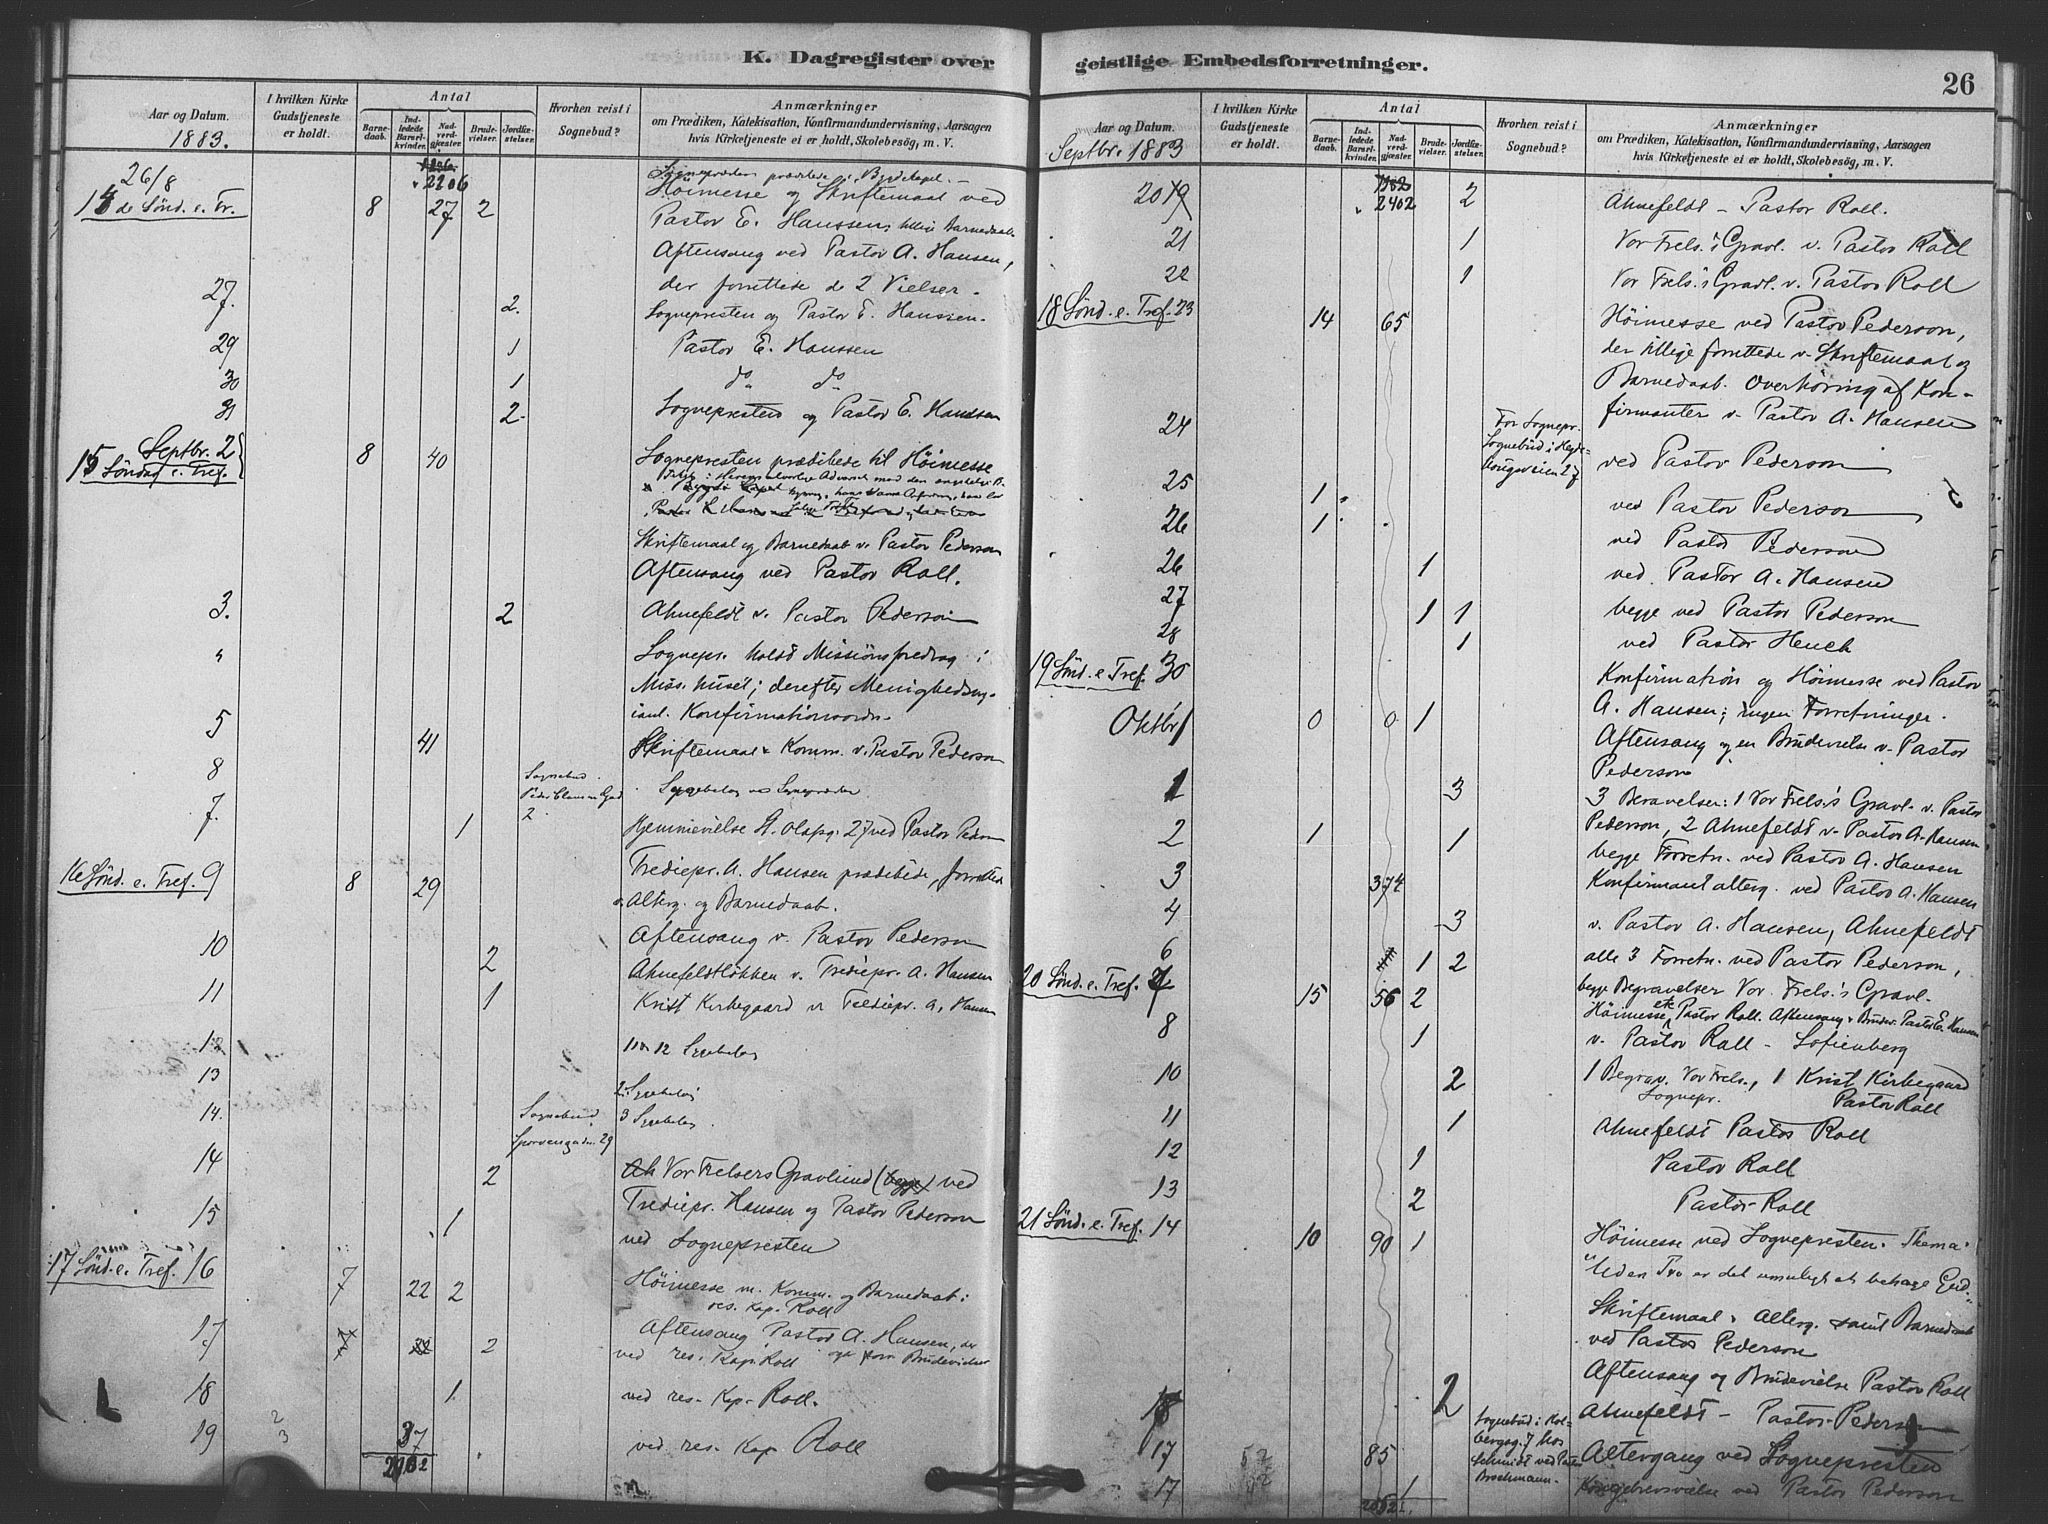 K. Dagregister over geistlige Embedsforretninger.
26
Aar og Datum.
1883.
I hvilken Kirke Gudstjeneste er holdt.
Antal
Barnedaab.
Indledede Barselkvinder.
Nadverdgjæster.
Brudevielser.
Jordfæstelser.
Hvorhen reist i Sognebud?
Anmærkninger
om Prædiken, Katekisation, Konfirmandundervisning, Aarsagen
hvis Kirketjeneste ei er holdt, Skolebesög, m. V.
26/8
2206
14de Sönd. e. Tr. 8 27 2
Höimesse og Skriftemaal ved
Pastor E. Hanssen, tillige Barnedaab.
Aftensang ved Pastor A. Hansen,
der forrettede de 2 Vielser.
27. 2. Sognepresten og Pastor E. Hanssen.
29 1 Pastor E. Hanssen
30 1 do do
31 2. Sognepresten og Pastor E. Hanssen
Septbr. 2
15 Söndag e. Tref. 8 40 Sognepresten prædikede til Höimesse
Skriftemaal og Barnedaab v. Pastor Pederson
Aftensang ved Pastor Roll.
3. 2 Ahnefeldt v. Pastor Pederson
" Sognepr. holdt Missionsforedrag i
Miss. huset; derefter Menigheds
saml. Konfirmation
5 41 Skriftemaal & Komm. v. Pastor Pederson
8 Sognebud
2
7. 1 Hjemmevielse St. Olafsg. 27 ved Pastor Pederson
16 Sönd. e. Tref. 9 8 29 Trediepr. A. Hansen prædikede, forrettede
Alterg. og Barnedaab.
Aftensang v. Pastor Pederson
10 2 Ahnefeldtlökken v. Trediepr. A. Hansen
11 1 Krist Kirkegaard v. Trediepr. A. Hansen
12
13
14. Sognebud
14 2 Vor Frelsers Gravlund (begge) ved
Trediepr. Hansen og Pastor Pederson
15 1 ved Sognepresten
17 Sönd. e. Tref. 16 7 22 2 Höimesse m. Komm. og Barnedaab:
res. Kap. Roll
Aftensang Pastor A. Hansen,
17 2 ved res. Kap. Roll
18 1 ved res. Kap. Roll.
19 37 ved res. Kap. Roll
Aar og Datum.
Septbr. 1883
I hvilken Kirke Gudstjeneste er holdt.
Antal
Barnedaab.
Indledede Barselkvinder.
Nadverdgjæster.
Brudevielser.
Jordfæstelser.
Hvorhen reist i Sognebud?
Anmærkninger
om Prædiken, Katekisation, Konfirmandundervisning, Aarsagen
hvis Kirketjeneste ei er holdt, Skolebesög, m. V.
20 2402 2 Ahnefeldt – Pastor Roll.
21 1 Vor Frels.'s Gravl. v. Pastor Roll
22 1 Vor Frels.'s Gravl. v. Pastor Roll
18 Sönd. e. Tref. 23 14 65 Höimesse ved Pastor Pederson,
der tillige forrettede v. Skriftemaal og
Barnedaab. Overhöring af Kon-
firmanter v. Pastor A. Hansen
24 For Sognepr. Sognebud i Hegdehaugsveien 27 ved Pastor Pederson
25 1 ved Pastor Pederson
26 1 ved Pastor Pederson
26 1 ved Pastor A. Hansen
27 1 1 begge ved Pastor Pederson
28 1 ved Pastor Heuch
19 Sönd. e. Tref. 30 Konfirmation og Höimesse ved Pastor
A. Hansen; ingen Forretninger.
Oktbr 0 0 1 Aftensang og en Brudevielse v. Pastor
Pederson
1 3 3 Begravelser: 1 Vor Frels.'s Gravl. v. Pastor
Pederson, 2 Ahnefeldt v. Pastor A. Hansen
2 1 1 begge Forretn. ved Pastor A. Hansen
3 374 Konfirmantalterg. ved Pastor A. Hansen
4 3 v. Pastor A. Hansen, Ahnefeldt
6 1 2 alle 3 Forretn. ved Pastor Pederson,
begge Begravelser Vor Frels.'s Gravl.
20 Sönd. e. Tref. 7 15 56 2 Höimesse etc Pastor Roll. Aftensang & Brudev. Pastor E. Hansen
8 1 v. Pastor Roll – Sofienberg
10 2 1 Begrav. Vor Frels., 1 Krist Kirkegaard
Sognepr. Pastor Roll
11 1 Ahnefeldt Pastor Roll
12 1 Pastor Roll
13 2 Pastor Roll
21 Sönd. e. Tref. 14 10 90 1 Höimesse ved Sognepresten. Thema:
"Uden Tro er det umuligt at behage Gud."
Skriftemaal & Alterg. samt Barnedaab
ved Pastor Pederson
Aftensang og Brudevielse Pastor Roll
2 Ahnefeldt – Pastor Pederson
17 85 Sognebud i Kolbergsg. 7 hos Schmidt ved Pastor Brochmann. Altergang ved Sognepresten
17 1 Kongebrevsvielse ved Pastor Pederson